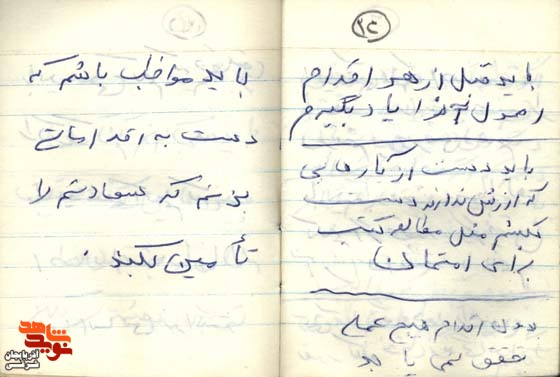 ۳۴
باید قبل از هر اقدام
اصول آنرا یاد بگیرم
باید دست از کارهایی
که ارزش ندارند دست
بکشم مثل مطالعه کتب
برای امتحان
بدون اقدام هیچ عملی
تحقق نمی یابد
باید مواظب باشم که
دست به اقداماتی
بزنم که سعادتم را
تأمین بکند.
نوید شاهد
آذربایجان شرقی